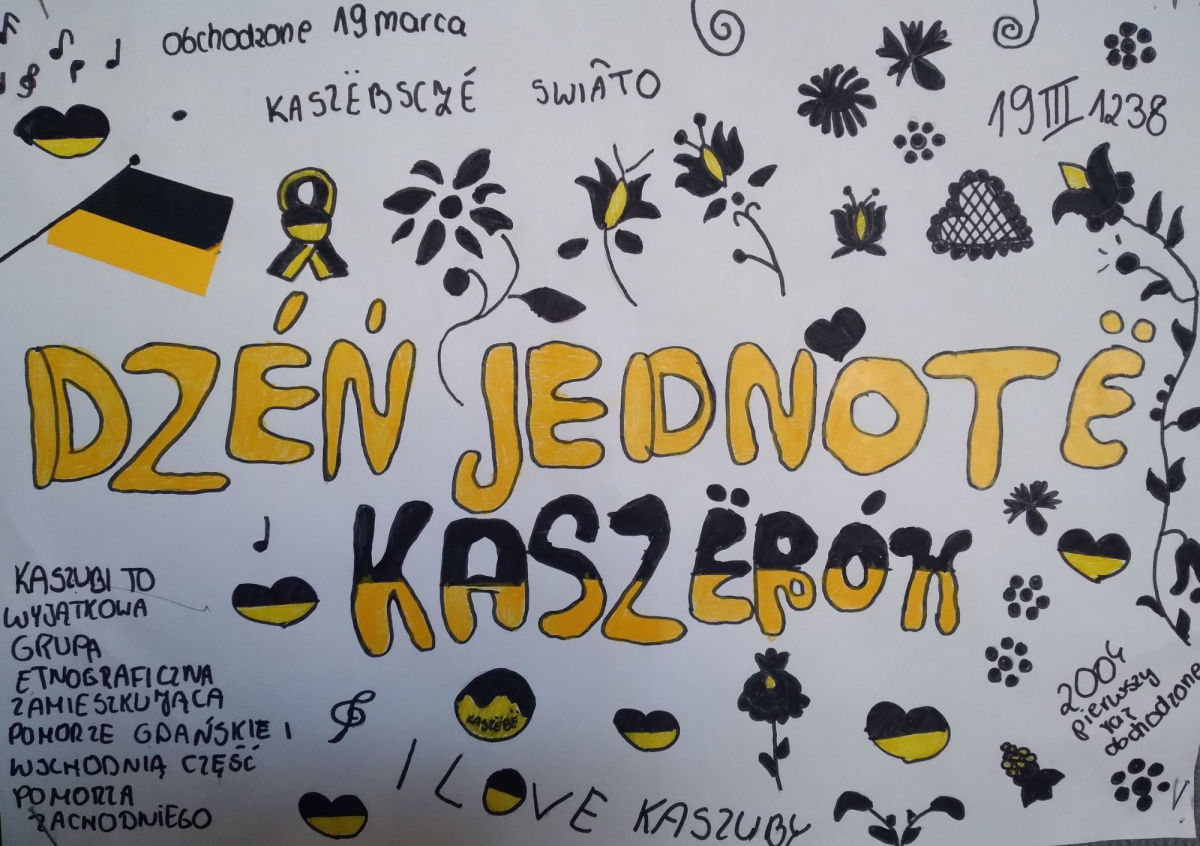 obchodzone 19 marca
KASZËBSCZÉ SWIÃTO
19 III 1238
DZÉŃ JEDNOTË
KASZËBÓW
KASZUBI TO
WYJĄTKOWA
GRUPA
ETNOGRAFICZNA
ZAMIESZKUJĄCA
POMORZE GDAŃSKIE I
WSCHODNIĄ CZĘŚĆ
POMORZA
ZACHODNIEGO
KASZËBË
I LOVE KASZUBY
2004
pierwszy
raz
obchodzone